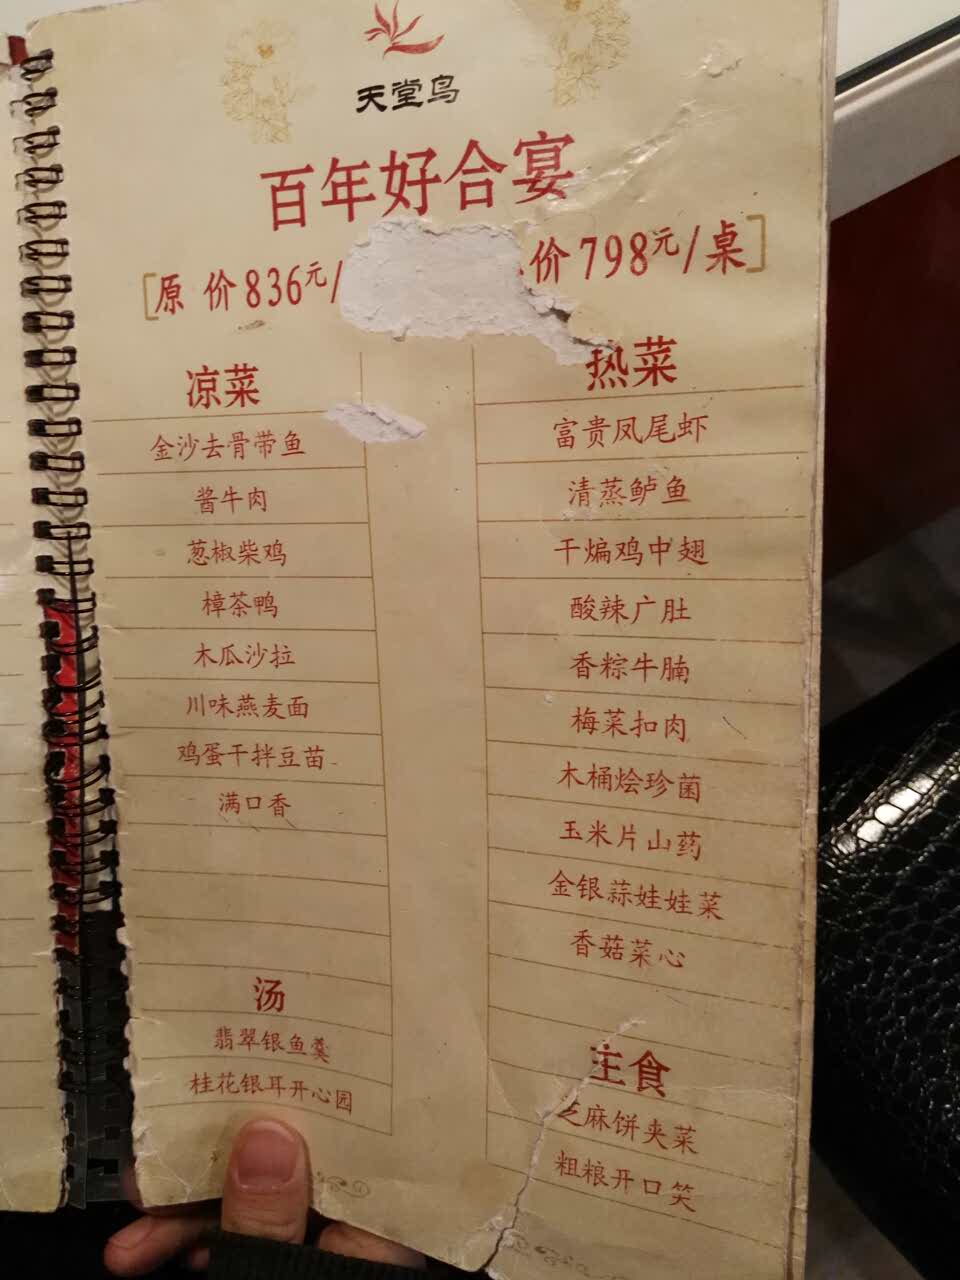 天堂鸟
百年好合宴
[原 价836元/
价798元/桌]
凉菜
金沙去骨带鱼
酱牛肉
葱椒柴鸡
樟茶鸭
木瓜沙拉
川味燕麦面
鸡蛋干拌豆苗
满口香
汤
翡翠银鱼羹
桂花银耳开心园
热菜
富贵凤尾虾
清蒸鲈鱼
干煸鸡中翅
酸辣广肚
香粽牛腩
梅菜扣肉
木桶烩珍菌
玉米片山药
金银蒜娃娃菜
香菇菜心
主食
芝麻饼夹菜
粗粮开口笑